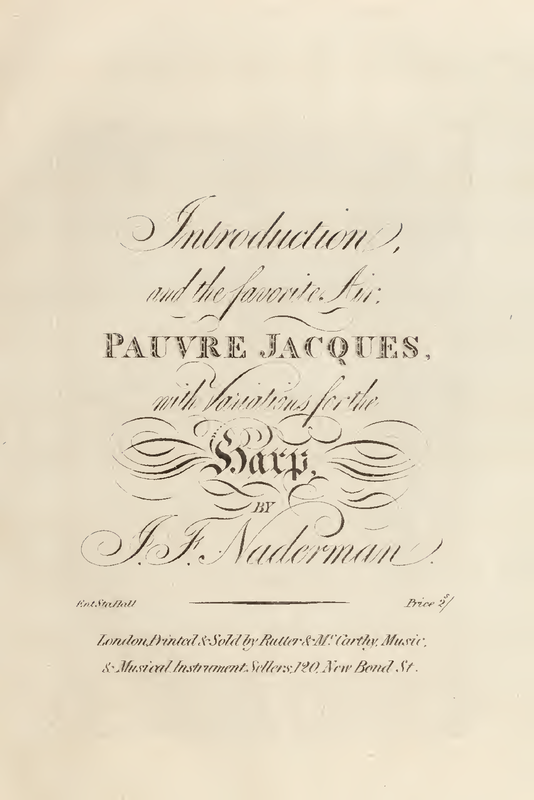 Introduction,
and the favorite Air,
PAUVRE JACQUES,
with Variations for the
Harp,
BY
J. F. Naderman.
Ent. Sta. Hall
Price 2s/
London, Printed & Sold by Rutter & Mc. Carthy, Music,
& Musical Instrument Sellers, 120, New Bond St.